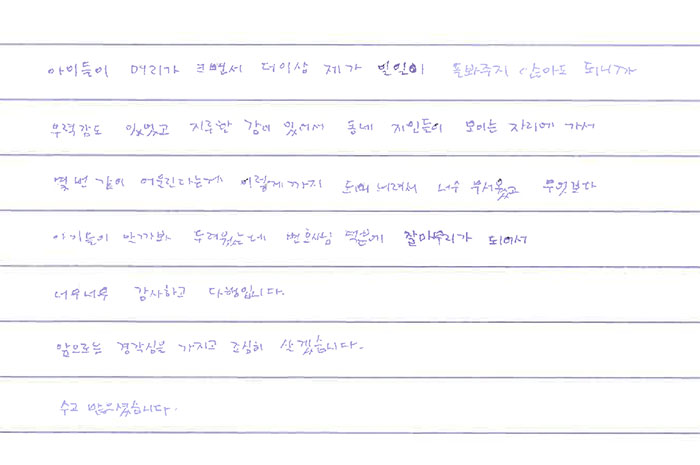 아이들이 머리가 크면서 더이상 제가 일일이 돌봐주지 않아도 되니까
무력감도 있었고 지루한 감이 있어서 동네 지인들이 모이는 자리에 가서
몇번 같이 어울린다는게 이렇게까지 되어버려서 너무 무서웠고 무엇보다
아기들이 알까봐 두려웠는데 변호사님 덕분에 잘마무리가 되어서
너무너무 감사하고 다행입니다.
앞으로는 경각심을 가지고 조심히 살겠습니다.
수고 많으셨습니다.